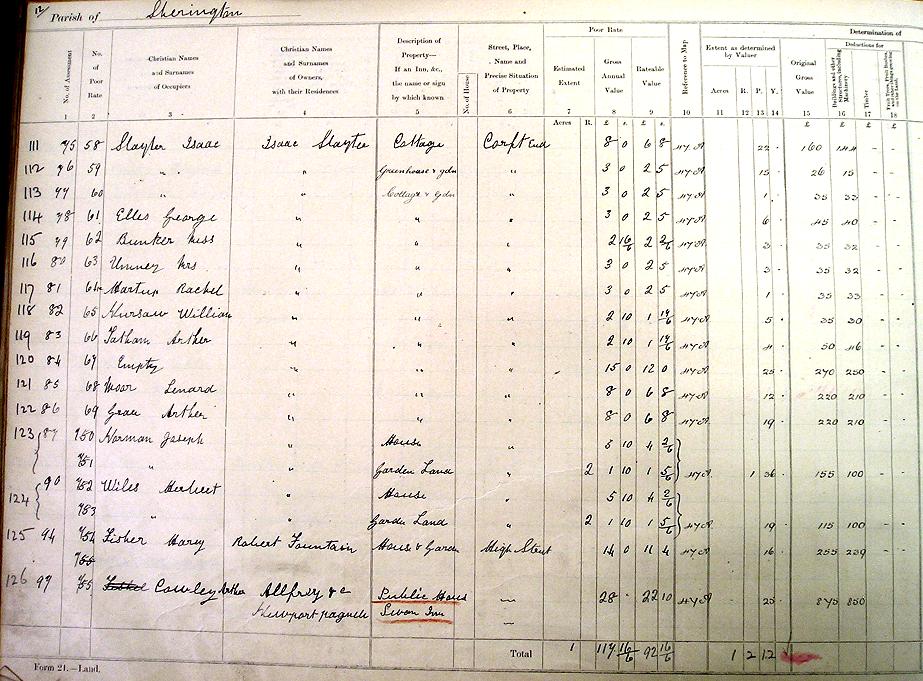 12 Parish of Sherington
Poor Rate
Determination of
No. of Assessment
No. of Poor Rate
Christian Names and Surnames of Occupiers
Christian Names and Surnames of Owners, with their Residences
Description of Property— If an Inn, &c., the name or sign by which known
No. of House
Street, Place, Name and Precise Situation of Property
Estimated Extent
Gross Annual Value
Rateable Value
Reference to Map
Extent as determined by Valuer
Original Gross Value
Deductions for
Buildings and other Structures, including Machinery
Timber
Fruit Trees, Fruit Bushes, and other things growing on the Land.
Acres R. P. Y.
1 2 3 4 5 6 7 8 9 10 11 12 13 14 15 16 17 18
Acres R. £ s. £ s. £ £
111 75 58 Slayter Isaac Isaac Slayter Cottage Corft End 8 0 6 8 22 160 144 - -
112 76 59 " " " Greenhouse & gdn " 3 0 2 5 15 26 15 - -
113 77 60 " " Cottage & Gdn " 3 0 2 5 1 35 33 - -
114 78 61 Elles George " " " 3 0 2 5 6 45 40 - -
115 79 62 Bunker Miss " " " 2 16/6 2 2/6 3 35 32 - -
116 80 63 Mrs " " " 3 0 2 5 3 35 32 - -
117 81 64 Rachel " " " 3 0 2 5 1 35 33 - -
118 82 65 William " " " 2 10 1 19/6 5 35 30 - -
119 83 66 Tatham Arther " " " 2 10 1 19/6 4 50 46 - -
120 84 67 Empty " " " 15 0 12 0 25 270 250 - -
121 85 68 Woar Lenard " " " 8 0 6 8 12 220 210 - -
122 86 69 Arther " " " 8 0 6 8 19 220 210 - -
123 87 Norman Joseph " House " 5 10 4 2/6
" Garden Land " 2 1 10 1 5/6 1 36 155 100 - -
124 90 Wiles Herbert " House 5 10 4 2/6
" Garden Land " 2 1 10 1 5/6 19 115 100 - -
125 94 Fisher Mary Robert Fountain House & Garden High Street 14 0 11 4 16 255 239 - -
126 97 Cowley Arther Allfrey & c Public House 28 - 22 10 25 875 850 - -
Newport Pagnell Swan Inn
Total 1 117 16/6 92 16/6 1 2 12
Form 21.—Land.